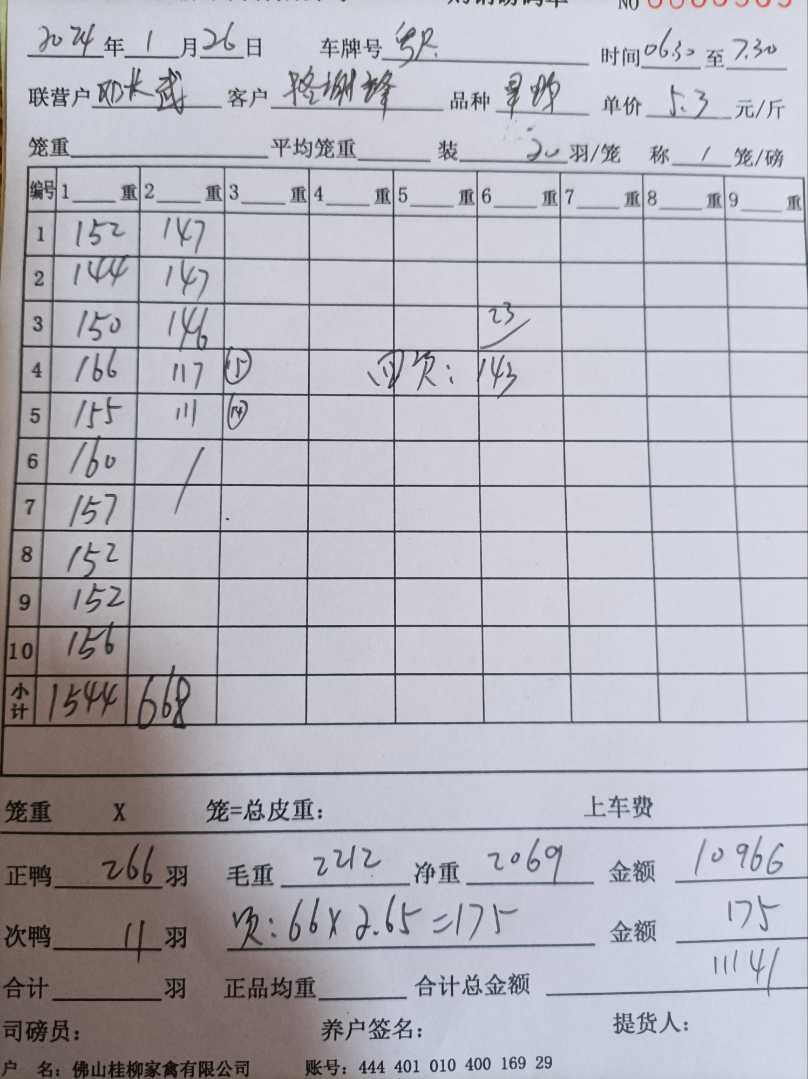 NO
2024年1月26日 车牌号 时间06:30至7.30
联营户 客户 品种 单价5.3元/斤
笼重 平均笼重 装20羽/笼 称1笼/磅
编号 1 重 2 重 3 重 4 重 5 重 6 重 7 重 8 重 9 重
1 152 147
2 144 147
3 150 146 23
4 166 117 15 143
5 155 111 14
6 160
7 157
8 152
9 152
10 156
小计 1544 668
笼重 X 笼=总皮重: 上车费
正鸭266羽 毛重2212 净重2069 金额10966
次鸭11羽 次:66X2.65=175 金额175
合计 羽 正品均重 合计总金额 11141
司磅员: 养户签名: 提货人:
户 名:佛山桂柳家禽有限公司 账号:444 401 010 400 169 29